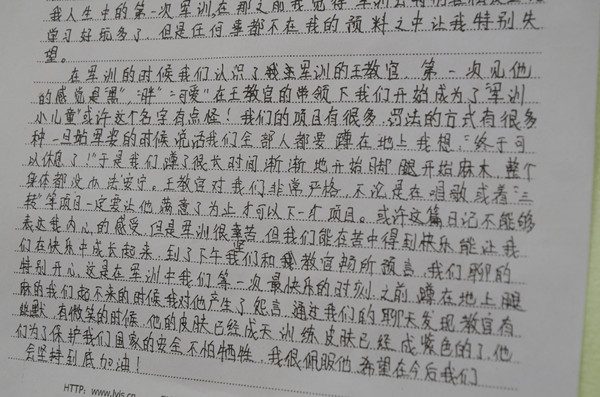 我人生中的第一次军训,在那之前我觉得军训
学习好玩多了,但是任何事都不在我的预料之中让我特别失
望。
在军训的时候我们认识了我军训的王教官 第一次见他
的感觉是"黑","胖""可爱"在王教官的带领下我们开始成为了"军训
小儿童"或许这个名字有点怪!我们的项目有很多,罚法的方式有很多
种 一旦的时候说话我们全部人都要蹲在地上我想,"终于可
以休息了!"于是我们蹲了很长时间渐渐地开始脚腿开始麻木,整个
身体都没办法安宁。王教官对我们非常严格,不论是在唱歌或着"三
转"等项目一定要让他满意了为止才可以下一个项目。或许这篇日记不能够
表达我内心的感受,但是军训很辛苦,但我们能在苦中得到快乐能让我
们在快乐中成长起来,到了下午我们和我教官畅所预言,我们聊的
特别开心,这是在军训中我们第一次最快乐的时刻,之前蹲在地上腿
麻的我们起不来的时候,我对他产生了怨言,通过我们的聊天发现教官有
幽默,有微笑的时候,他的皮肤已经成天训练皮肤已经成紫色的了,他
们为了保护我们国家的安全不怕牺牲,我很佩服他,希望在今后我们
会坚持到底加油!
HTTP: www.lyis.cn